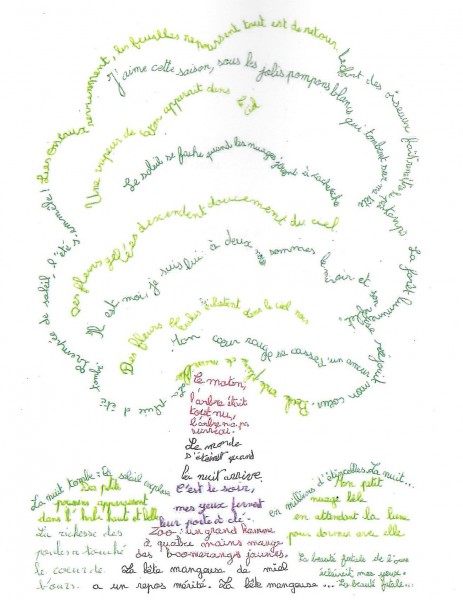 Les oiseaux reviennent, les feuilles repoussent tout est de retour
Le chant des oiseaux
printemps
J'aime cette saison, sous les jolis pompons blancs qui tombent sur ma tête
Une vapeur de coton apparaît dans le ciel
Le soleil se fâche quand les nuages jouent à cache cache
Des fleurs gelées descendent doucement du ciel
Il est moi, je suis lui à deux nous sommes le miroir et son reflet
Des fleurs éclatent dans le ciel noir
Mon cœur rouge se casse, un amour
La forêt
réjouit mon cœur.
L'éclipse de soleil, l'été s'émerveille!
pluie d'été tombe.
Le matin,
l'arbre était
tout nu,
l'arbre n'a pas
sursauté.
Le monde
s'éteint quand
la nuit arrive.
C'est le soir,
mes yeux ferment
leur porte à clé.
La nuit tombe : Le soleil explose
en millions d'étincelles. La nuit...
Sa p'tite
apparaissent
dans l' haut et
Mon petit
nuage bleu
en attendant la lune
pour dormir avec elle
La richesse des
a touché
le cœur de
l'ours.
Zoo : un grand homme
à quatre mains mange
des boomerangs jaunes.
La beauté fatale de l'ours
éclaircit mes yeux.
La beauté fatale...
La bête mangeuse de miel
a un repos mérité. La bête mangeuse ...